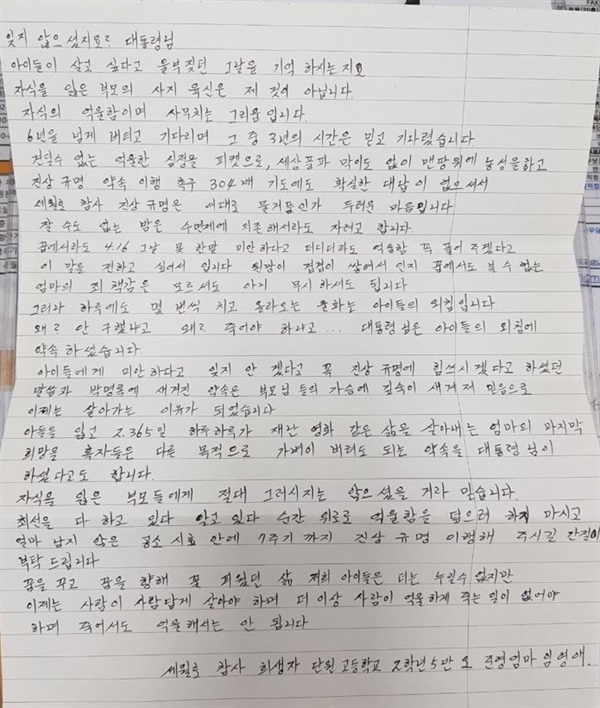 잊지 않으셨지요? 대통령님
아이들이 살고 싶다고 울부짖던 그날을 기억 하시는지요
자식을 잃은 부모의 사지 육신은 제 것이 아닙니다.
자식의 억울함이며 사무치는 그리움입니다.
6년을 넘게 버티고 기다리며 그 중 3년의 시간은 믿고 기다렸습니다.
견딜수 없는 억울한 심정을 피켓으로, 세상풍파 막이도 없이 맨땅위에 농성을하고
진상 규명 약속 이행 촉구 304배 기도에도 확실한 대답이 없으셔서
세월호 참사 진상 규명은 이대로 물거품인가 두려운 마음입니다
잘 수도 없는 밤은 수면제에 의존해서라도 자려고 합니다.
꿈에서라도 4.16 그날 못 한말 미안하다고 더디더라도 억울함 꼭 풀어 주겠다고
이 말을 전하고 싶어서 입니다 원망이 겹겹이 쌓여서 인지 꿈에서도 볼 수 없는
엄마의 죄책감은 모르셔도 아니 무시 하셔도 됩니다
그러나 하루에도 몇 번씩 치고 올라오는 울화는 아이들의 외침입니다
왜 안 구했냐고 왜 죽어야 하냐고... 대통령님은 아이들의 외침에
약속 하셨습니다.
아이들에게 미안하다고 잊지 안 겠다고 꼭 진상 규명에 힘쓰시겠다고 하셨던
말씀과 방명록에 새겨진 약속은 부모님 들의 가슴에 깊숙이 새겨져 믿음으로
이제는 살아가는 이유가 되었습니다
아들을 잃고 2,365일 하루하루가 재난 영화 같은 삶을 살아내는 엄마의 마지막
희망을 혹자들은 다른 목적으로 가벼이 버려도 되는 약속을 대통령님이
하셨다고도 합니다.
자식을 잃은 부모들에게 절대 그러시지는 않으셨을 거라 믿습니다.
최선을 다 하고 있다 알고있다 순간 위로로 억울함을 덮으려 하지 마시고
얼마 남지 않은 공소 시효 안에 7주기 까지 진상 규명 이행해 주시길 간절히
부탁 드립니다
꿈을 꾸고 꿈을 향해 꽃 피웠던 삶 저희 아이들은 더는 누릴수 없지만
이제는 사람이 사람답게 살아야 하며 더 이상 사람이 억울하게 죽는 일이 없어야
하며 죽어서도 억울해서는 안 됩니다
세월호 참사 희생자 단원고등학교 2학년5반 오준영엄마 임영애.